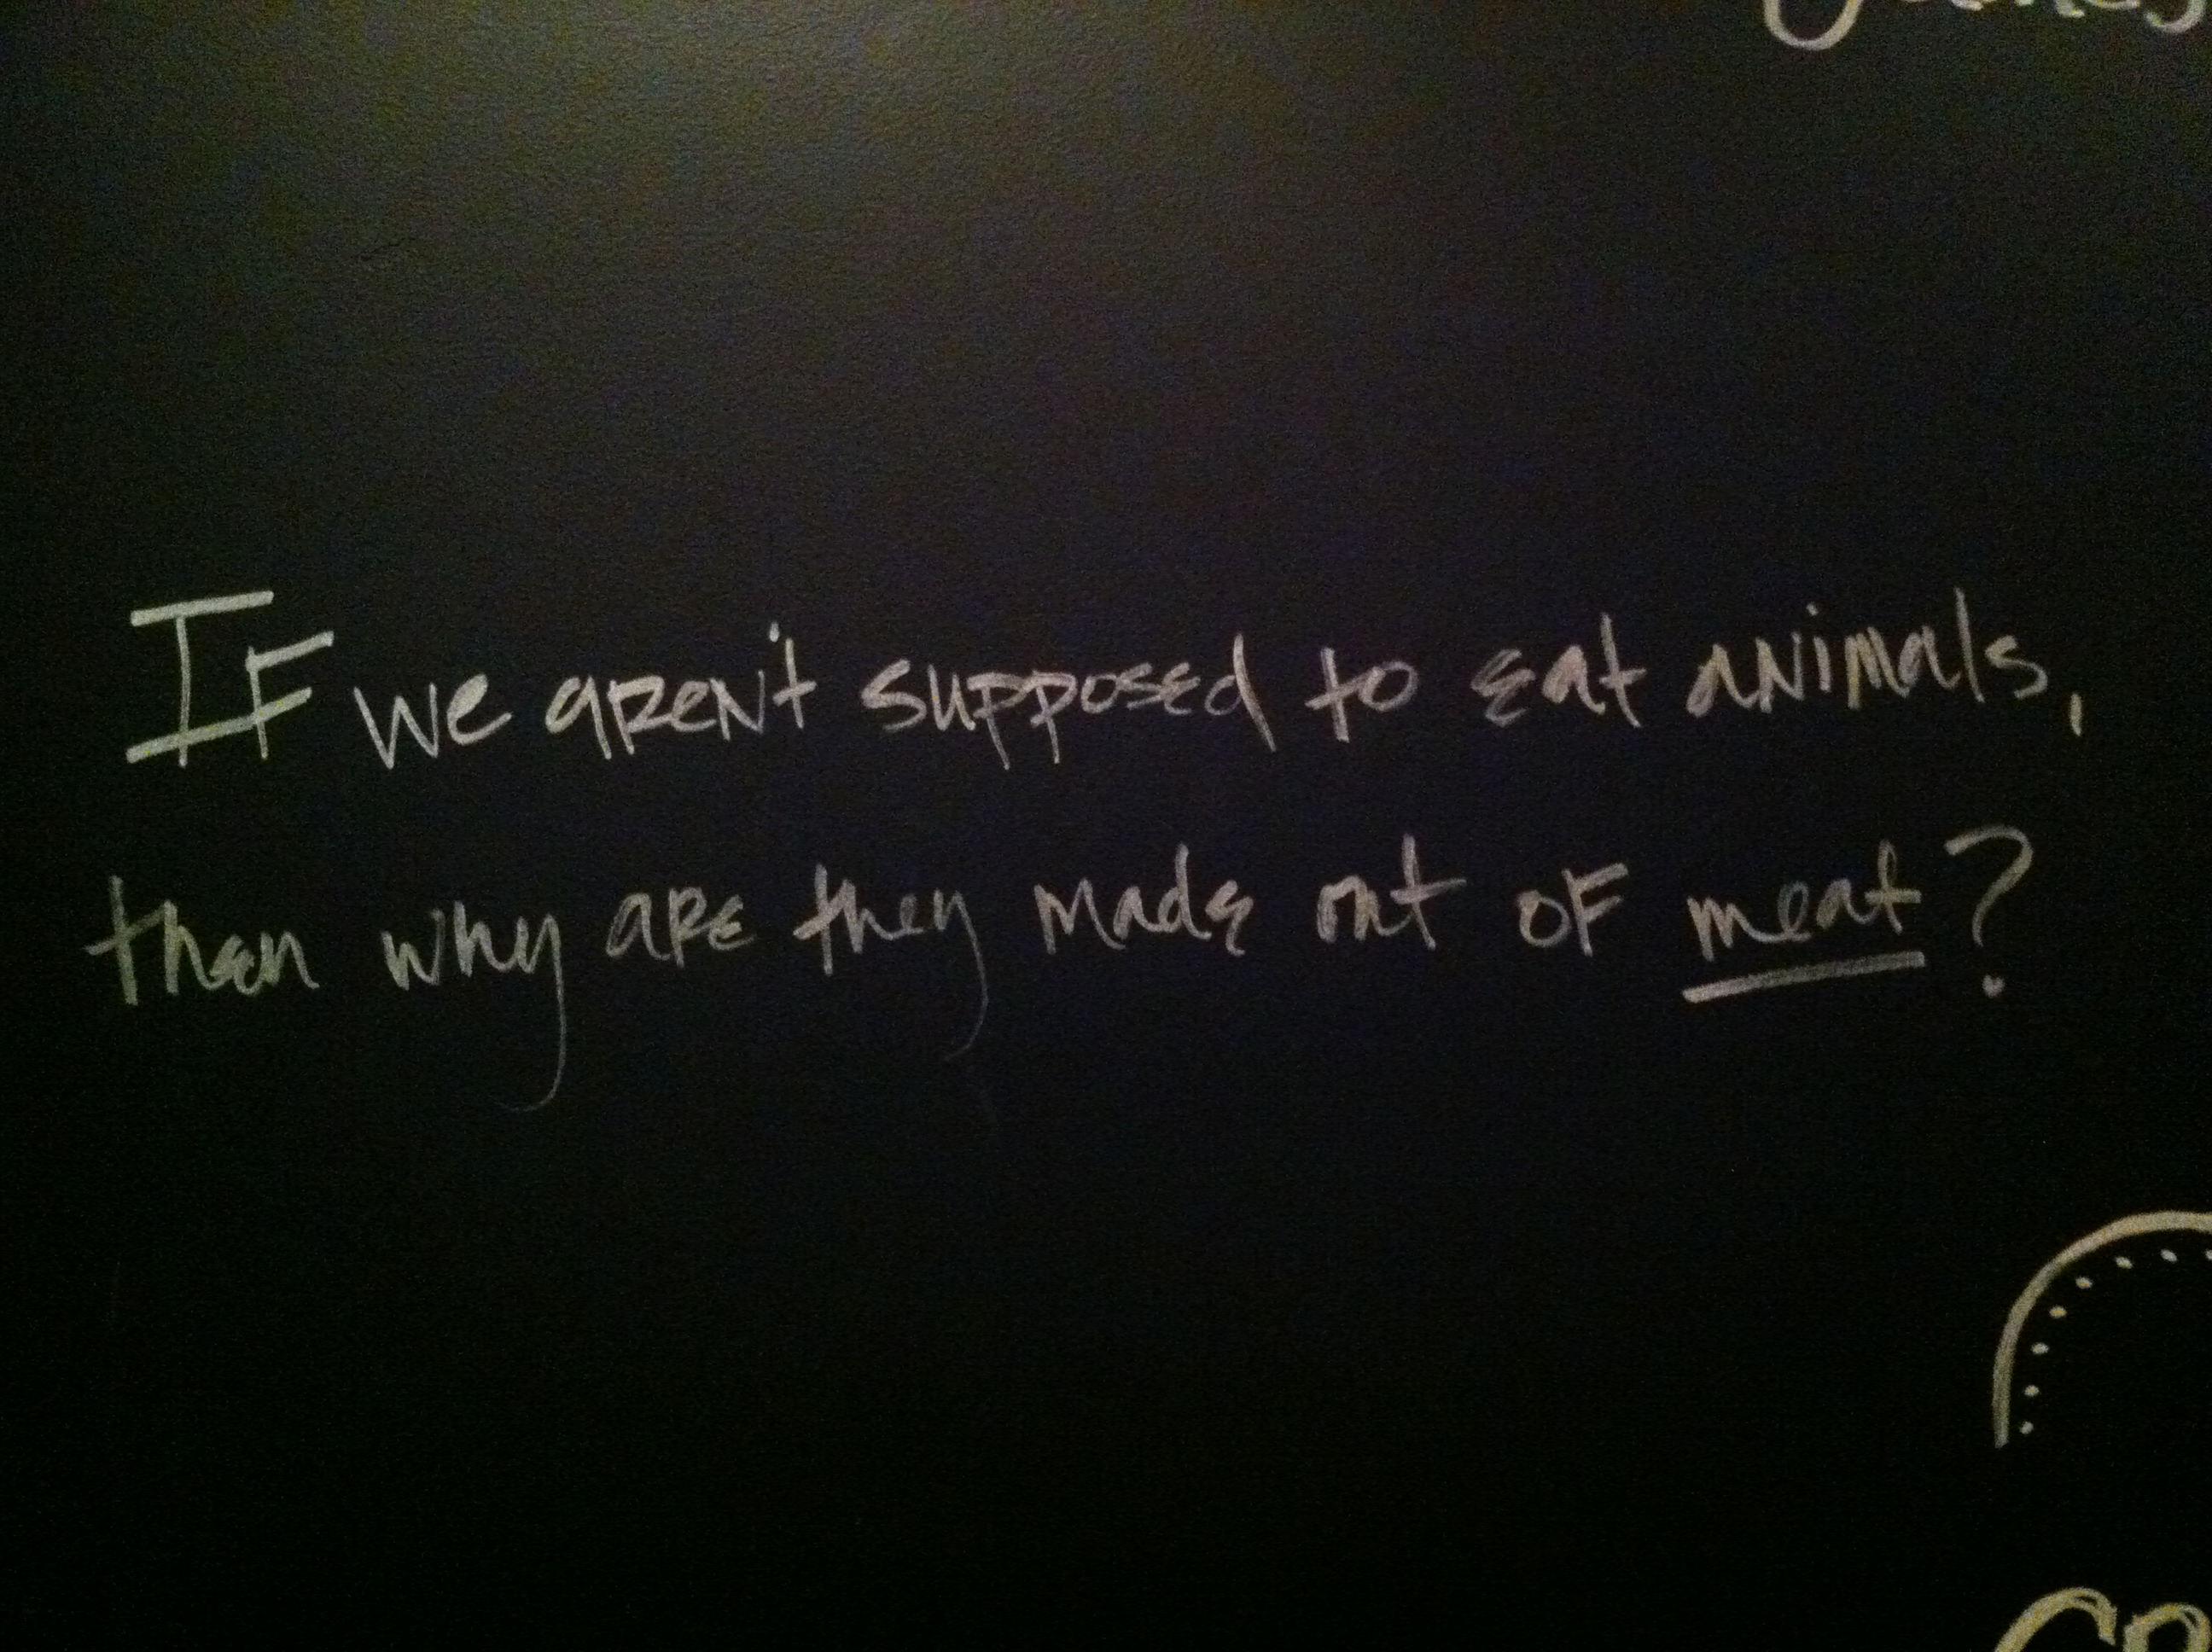 IF we aren't supposed to eat animals,
then why are they made out of meat?